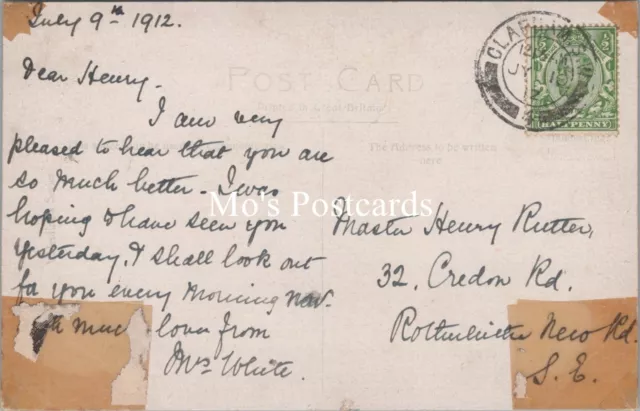 July 9th 1912.
Dear Henry.
I am very
pleased to hear that you are
so much better - I was
hoping to have seen you
yesterday, I shall look out
for you every morning now.
much love from
Mrs White.
POST CARD
Printed in Great Britain
The Address to be written
here
Master Henry Rutter,
32, Credon Rd.
Rotherhithe New Rd.
S. E.
CLAPHAM S.
JY 10
HALFPENNY
Mo's Postcards